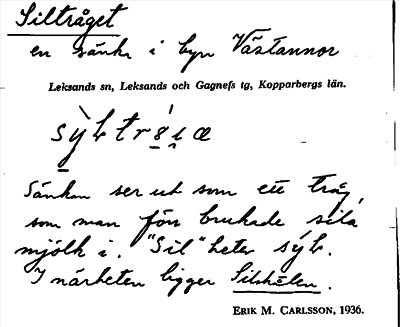 Siltråget
en sänka i byn Västannor
Leksands sn, Leksands och Gagnefs tg, Kopparbergs län.
Sänkan ser ut som ett tråg,
som man förr brukade sila
mjölk i. "Sil" heter
I närheten ligger
ERIK M. CARLSSON, 1936.